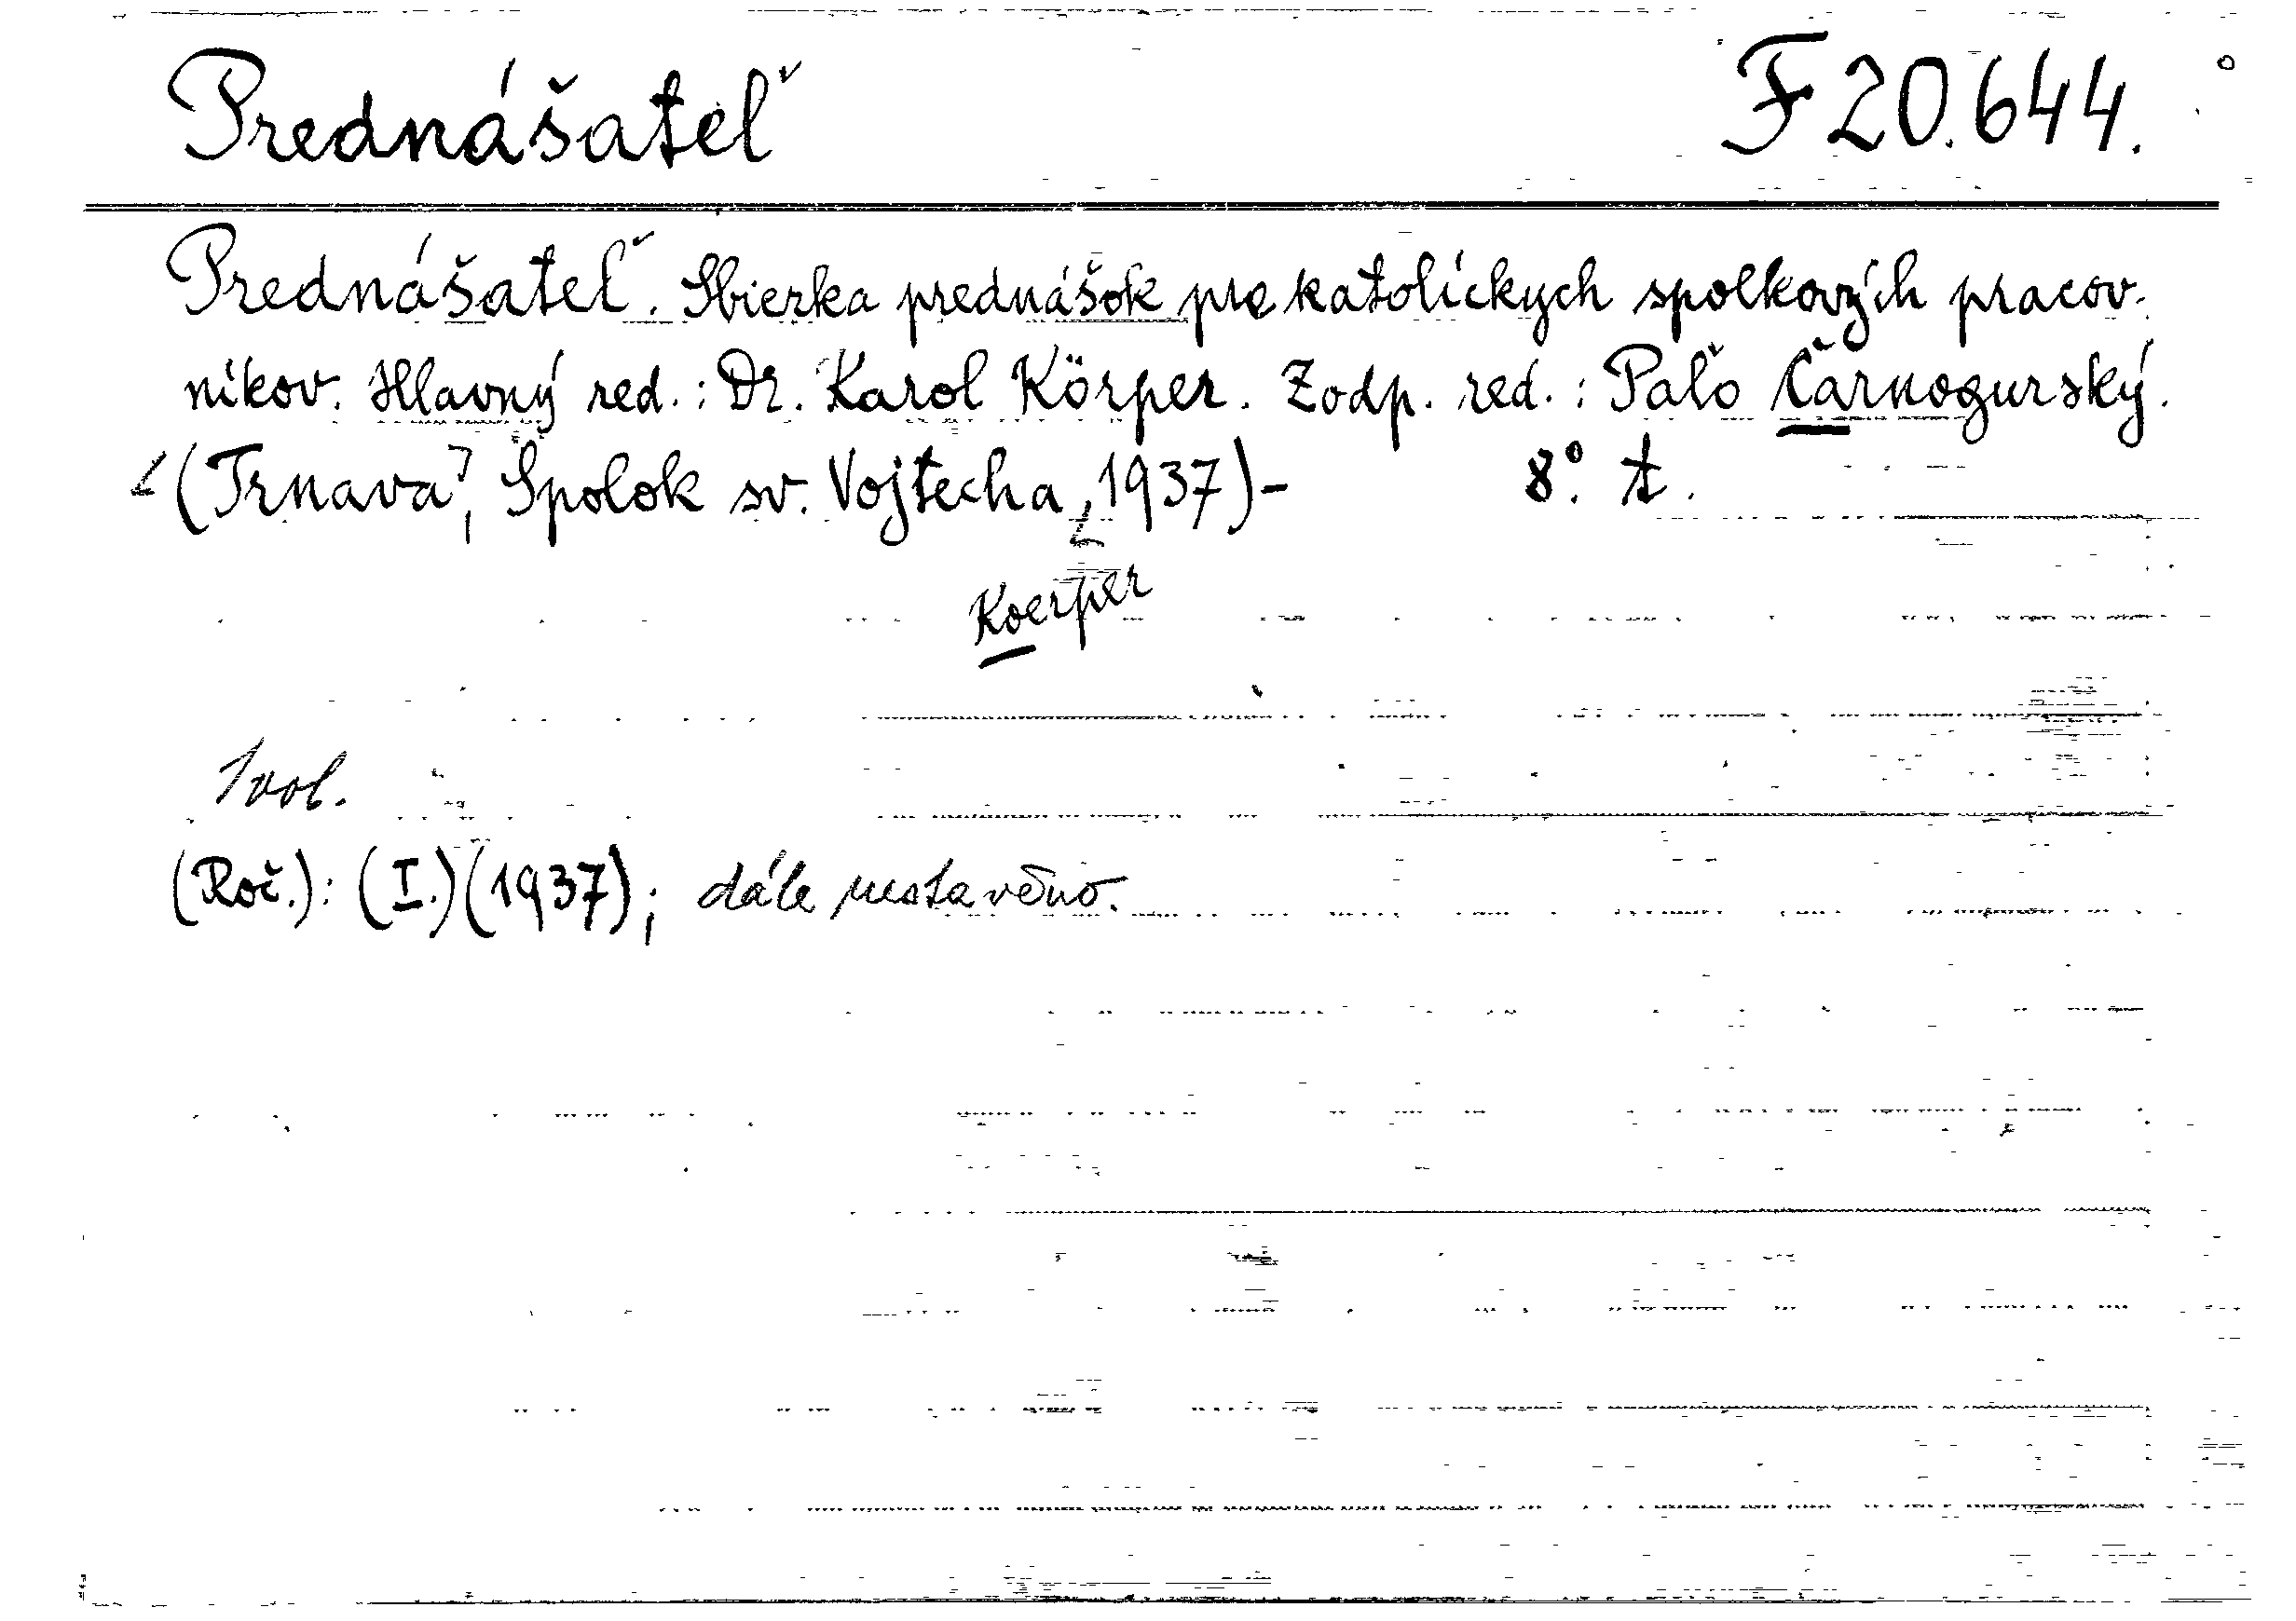 Prednášateľ F 20.644.
Prednášateľ. Sbierka prednášok pre katolíckych spolkových pracov-
níkov. Hlavný red.: Dr. Karol Körper. Zodp. red.: Paľo Čarnogurský.
(Trnava, Spolok sv. Vojtecha, 1937)- 8°.
Koerper
1 vol.
(Roč.): (I.)(1937); dále nestavěno.